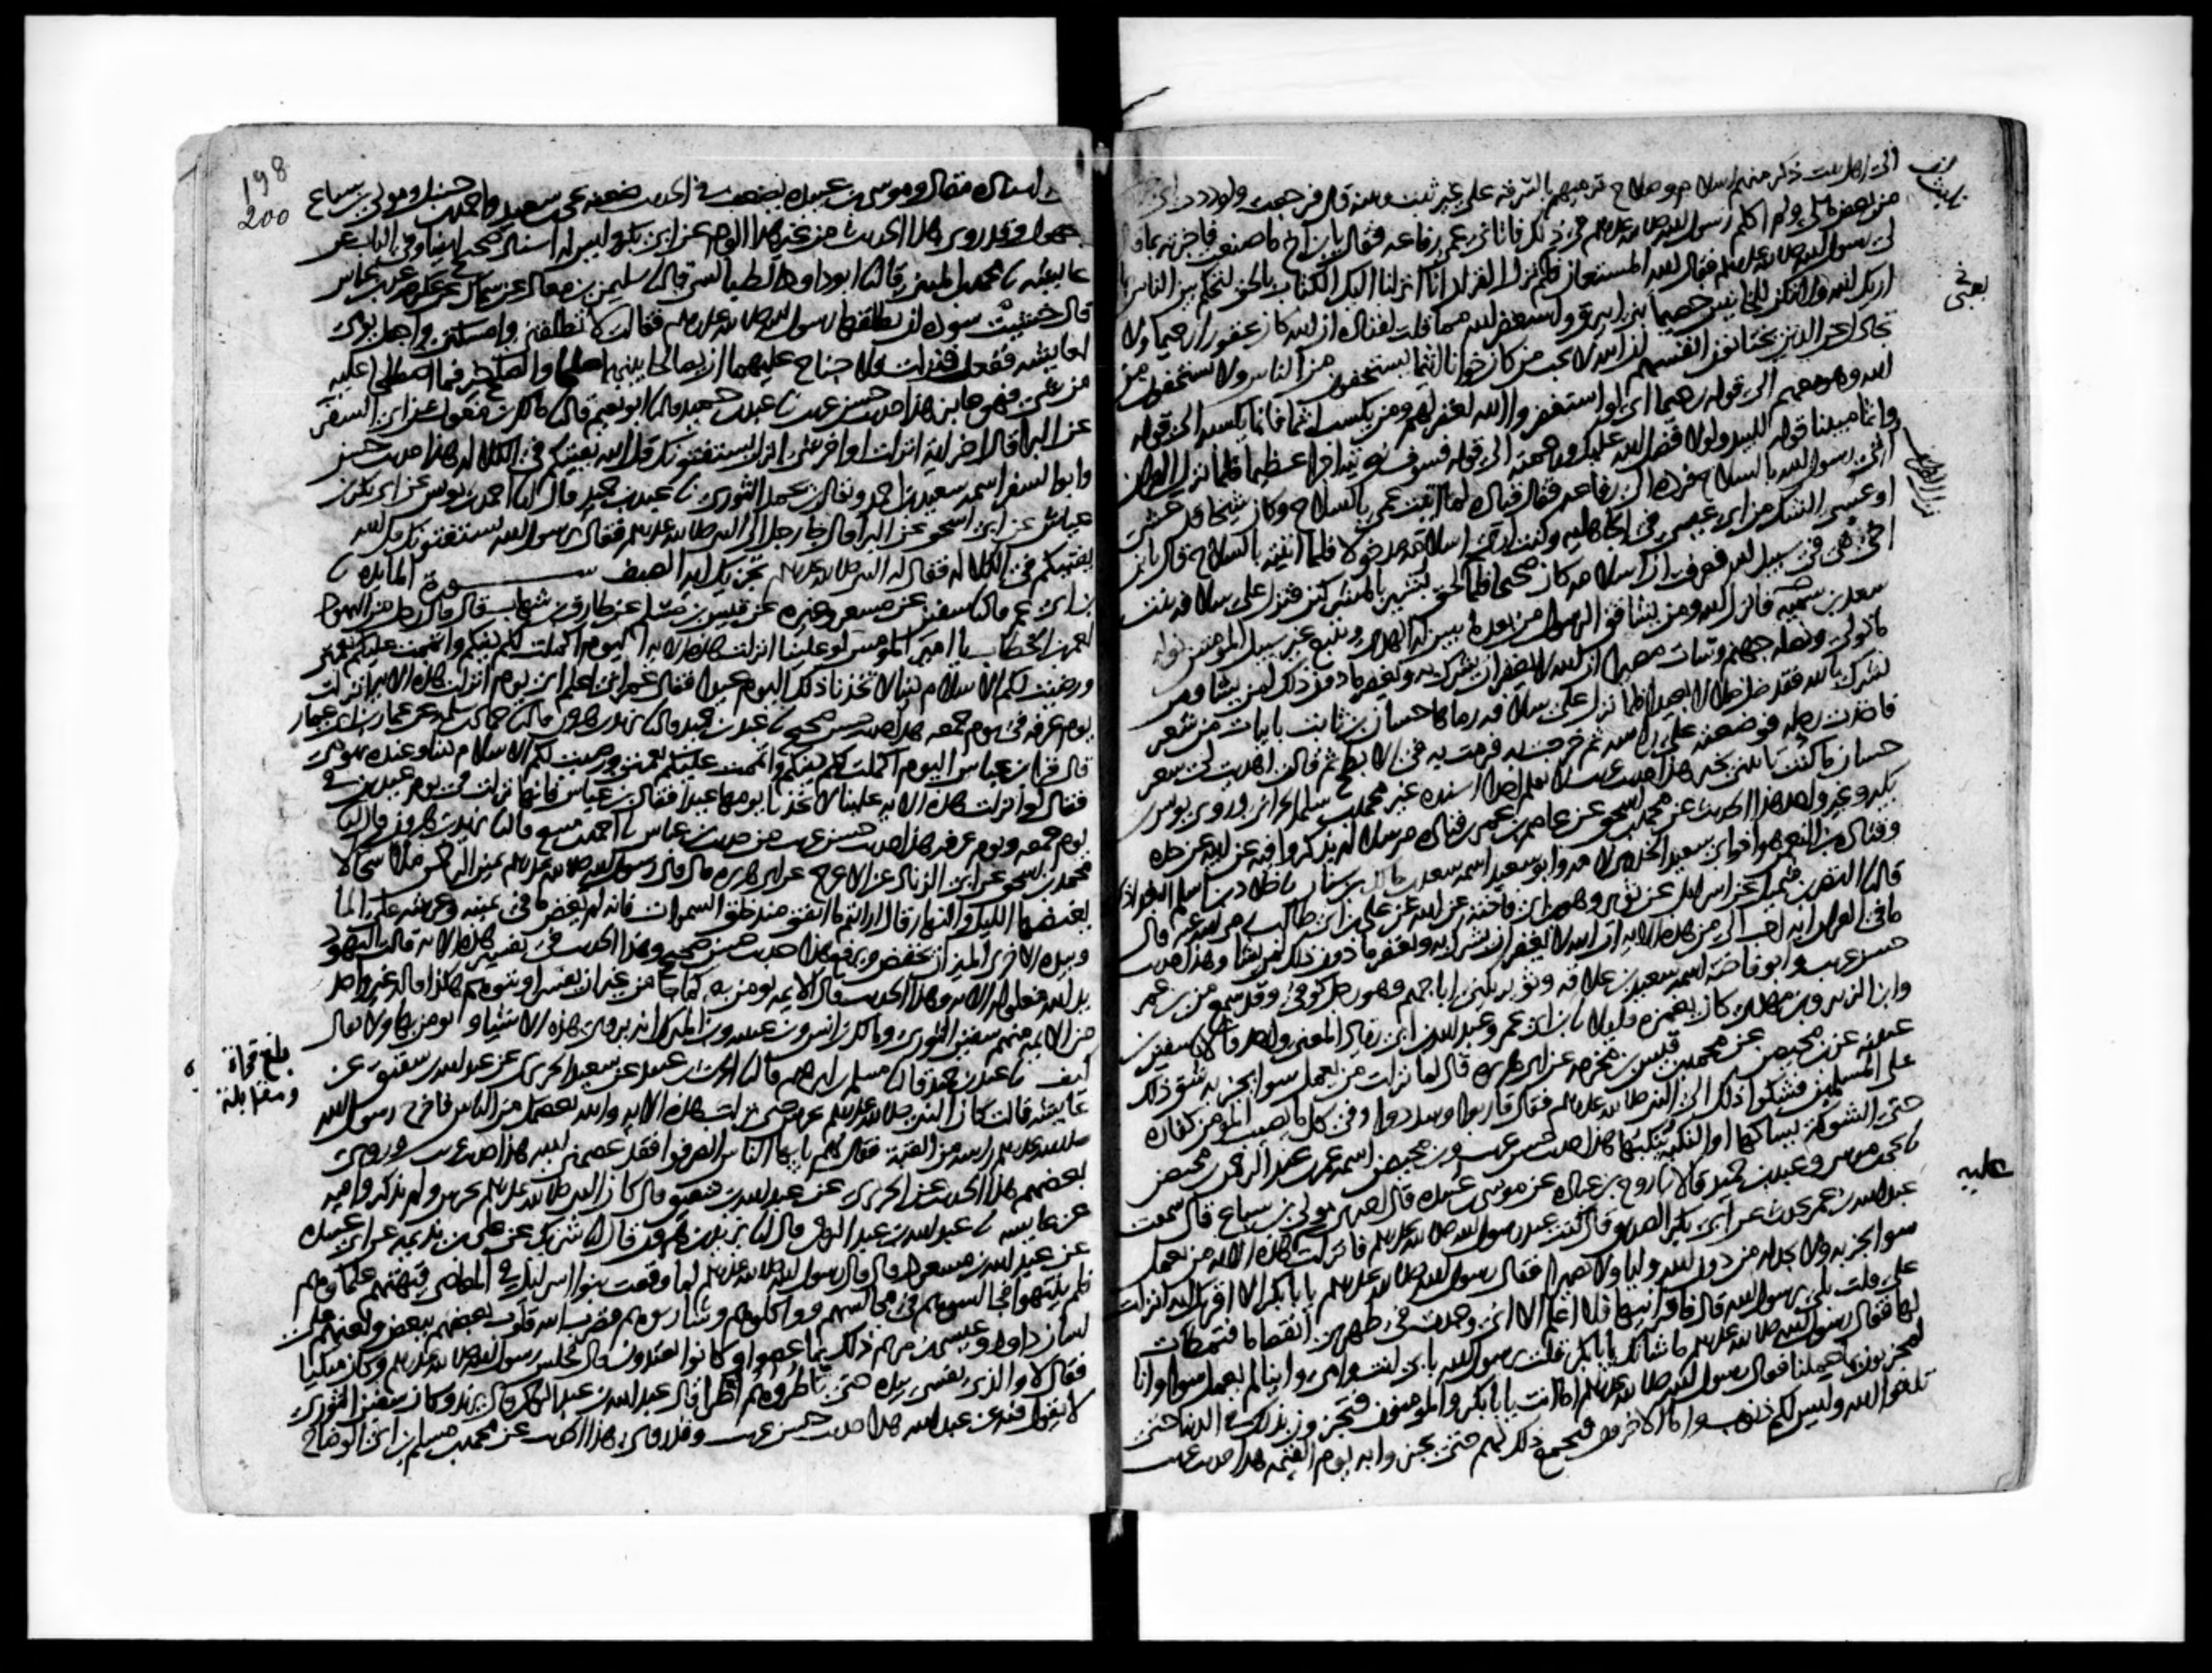 الى اهل بيت ذكر منهم اسلام وصلاح ترميهم بالسرقة على غير ثبت وبينة قال فرجعت ولوددت اني
من بعض مالي ولم اكلم رسول الله صلى الله عليه وسلم في ذلك فاتاني عمي رفاعه فقال يا بن اخي ما صنعت فاخبرته بما قال
لي رسول الله صلى الله عليه وسلم فقال الله المستعان فلم نزل القران انا انزلنا اليك الكتاب بالحق لتحكم بين الناس بما
اريك الله ولا تكن للخائنين خصيما بني ابيرق واستغفر الله مما قلت لقتاده ان الله كان غفورا رحيما ولا
تجادل عن الذين يختانون انفسهم ان الله لا يحب من كان خوانا اثيما يستخفون من الناس ولا يستخفون من
الله وهو معهم الى قوله رحيما اي لو استغفروا الله لغفر لهم ومن يكسب اثما فانما يكسبه الى قوله
واثما مبينا قوله للبيد ولولا فضل الله عليك ورحمته الى قوله فسوف نؤتيه اجرا عظيما فلما نزل القران
اتى رسول الله بالسلاح فرده الى رفاعه فقال قتاده لما اتيت عمي بالسلاح وكان شيخا قد عشى
او عسى الشك من ابي عيسى في الجاهليه وكنت ارى اسلامه مدخولا فلما اتيته بالسلاح قال يا بن
اخي هي في سبيل الله فعرفت ان اسلامه كان صحيحا فلما لحق بشير بالمشركين فنزل على سلافه بنت
سعد بن سميه فانزل الله ومن يشاقق الرسول من بعد ما تبين له الهدى ويتبع غير سبيل المومنين نوله
ما تولى ونصله جهنم وساءت مصيرا ان الله لا يغفر ان يشرك به ويغفر ما دون ذلك لمن يشا ومن
يشرك بالله فقد ضل ضلالا بعيدا فلما نزل على سلافه رماها حسان بن ثابت بابيات من شعر
فاخذت رحله فوضعته على راسها ثم خرجت به فرمت به في الابطح ثم قالت اهديت لي شعر
حسان ما كنت تاتيني بخير هذا حديث غريب لا نعلم احدا اسنده غير محمد بن سلمه الحراني وروى يونس بن
بكير وغير واحد هذا الحديث عن محمد بن اسحق عن عاصم بن عمر بن قتاده مرسلا لم يذكروا فيه عن ابيه عن جده
وقتاده بن النعمن هو اخو ابي سعيد الخدري لامه وابو سعيد اسمه سعد بن مالك بن سنان
حسن غريب وابو فاخته اسمه سعيد بن علاقه وثوير يكنى ابا جهم وهو رجل كوفي وقد سمع من بن عمر
وابن الزبير وبن مهدي كان يغمزه قليلا
على المسلمين فشكوا ذلك الى النبي صلى الله عليه وسلم فقال قاربوا وسددوا وفي كل ما يصيب المومن كفاره
حتى الشوكة يشاكها او النكبة ينكبها هذا حديث حسن غريب وبن محيصن اسمه عمر بن عبد الرحمن بن محيصن
يحيى بن موسى وعبد بن حميد قالا نا روح بن عباده عن موسى بن عبيده قال اخبرني مولى بن سباع قال سمعت
عبد الله بن عمر يحدث عن ابي بكر الصديق قال كنت عند رسول الله صلى الله عليه وسلم فانزلت هذه الايه من يعمل
سوا يجز به ولا يجد له من دون الله وليا ولا نصيرا فقال رسول الله صلى الله عليه وسلم يا ابا بكر الا اقرئك ايه انزلت
علي قلت بلى يرسول الله قال فاقرانيها فلا اعلم الا اني وجدت في ظهري انقصاما فتمطات
لها فقال رسول الله صلى الله عليه وسلم ما شانك يا ابا بكر قلت يرسول الله بابي انت وامي واينا لم يعمل سوا وانا
لمجزيون بما عملنا فقال رسول الله صلى الله عليه وسلم اما انت يا ابا بكر والمومنون فتجزون بذلك في الدنيا حتى
تلقوا الله وليس لكم ذنوب واما الاخرون فيجمع ذلك لهم حتى يجزوا به يوم القيمه هذا حديث غريب
يعني
عليه
198
200
اسناده مقال وموسى بن عبيده يضعف في الحديث ضعفه يحيى بن سعيد واحمد بن حنبل ومولى بن سباع
مجهول وقد روى هذا الحديث من غير هذا الوجه عن ابي بكر وليس له اسناد صحيح ايضا وفي الباب عن
عايشه نا محمد بن المثنى قال نا ابو داود الطيالسي قال نا سليمن بن معاذ عن سماك عن عكرمه عن بن عباس
قال خشيت سوده ان يطلقها رسول الله صلى الله عليه وسلم فقالت لا تطلقني وامسكني واجعل يومي
لعايشه ففعل فنزلت فلا جناح عليهما ان يصالحا بينهما صلحا والصلح خير فما اصطلحا عليه
من شي فهو جايز هذا حديث حسن غريب نا عبد بن حميد قال نا ابو نعيم قال نا مالك بن مغول عن ابي السفر
عن البرا قال اخر ايه انزلت او اخر شي انزل يستفتونك قل الله يفتيكم في الكلاله هذا حديث حسن
وابو السفر اسمه سعيد بن احمد ويقال بن يحمد الثوري نا عبد بن حميد قال نا احمد بن يونس عن ابي بكر بن
عياش عن ابي اسحق عن البرا قال جا رجل الى النبي صلى الله عليه وسلم فقال يرسول الله يستفتونك قل الله
يفتيكم في الكلاله فقال له النبي صلى الله عليه وسلم تجزيك ايه الصيف ســـورة المايده نا
بن ابي عمر قال نا سفين عن مسعر وغيره عن قيس بن مسلم عن طارق بن شهاب قال قال رجل من اليهود
لعمر بن الخطاب يا امير المومنين لو علينا انزلت هذه الايه اليوم اكملت لكم دينكم واتممت عليكم نعمتي
ورضيت لكم الاسلام دينا لاتخذنا ذلك اليوم عيدا فقال عمر اني اعلم اي يوم انزلت هذه الايه انزلت
يوم عرفه في يوم جمعه هذا حديث حسن صحيح نا عبد بن حميد قال نا يزيد بن هرون قال نا حماد بن سلمه عن عمار بن ابي عمار
قال قرا بن عباس اليوم اكملت لكم دينكم واتممت عليكم نعمتي ورضيت لكم الاسلام دينا وعنده يهودي
فقال لو انزلت هذه الايه علينا لاتخذنا يومها عيدا فقال بن عباس فانها نزلت في يوم عيدين في
يوم جمعه ويوم عرفه هذا حديث حسن غريب من حديث بن عباس نا احمد بن منيع قال نا يزيد بن هرون قال نا
محمد بن اسحق عن ابي الزناد عن الاعرج عن ابي هريره قال قال رسول الله صلى الله عليه وسلم يمين الرحمن ملاى سحا لا
يغيضها الليل والنهار قال ارايتم ما انفق منذ خلق السموات فانه لم يغض ما في يمينه وعرشه على الما
وبيده الاخرى الميزان يخفض ويرفع هذا حديث حسن صحيح وهذا الحديث في تفسير هذه الايه قالت اليهود
يد الله مغلوله الايه وهذا الحديث قال الايمه نومن به كما جا من غير ان يفسر او يتوهم هكذا قال غير واحد
من الايمه منهم سفين الثوري ومالك بن انس وبن عيينه وبن المبارك انه يروى هذه الاشيا ونومن بها ولا يقال
كيف نا عبد بن حميد قال نا مسلم بن ابرهيم قال نا الحرث بن عبيد عن سعيد الجريري عن عبد الله بن شقيق عن
عايشه قالت كان النبي صلى الله عليه وسلم يحرس حتى نزلت هذه الايه والله يعصمك من الناس فاخرج رسول الله
صلى الله عليه وسلم راسه من القبة فقال لهم يا ايها الناس انصرفوا فقد عصمني الله هذا حديث غريب وروى
بعضهم هذا الحديث عن الجريري عن عبد الله بن شقيق قال كان النبي صلى الله عليه وسلم يحرس ولم يذكروا فيه
عن عايشه نا عبد الله بن عبد الرحمن قال نا يزيد بن هرون قال نا شريك عن علي بن بذيمه عن ابي عبيده
عن عبد الله بن مسعود قال قال رسول الله صلى الله عليه وسلم لما وقعت بنوا اسرايل في المعاصي فنهتهم علماوهم
فلم ينتهوا فجالسوهم في مجالسهم وواكلوهم وشاربوهم فضرب الله قلوب بعضهم ببعض ولعنهم على
لسان داود وعيسى بن مريم ذلك بما عصوا وكانوا يعتدون قال فجلس رسول الله صلى الله عليه وسلم وكان متكيا
فقال لا والذي نفسي بيده حتى تاطروهم اطرا قال عبد الله بن عبد الرحمن قال يزيد وكان سفين الثوري
لا يقول فيه عن عبد الله هذا حديث حسن غريب وقد روي هذا الحديث عن محمد بن مسلم بن ابي الوضاح
بلغ قراة
ومقابلة